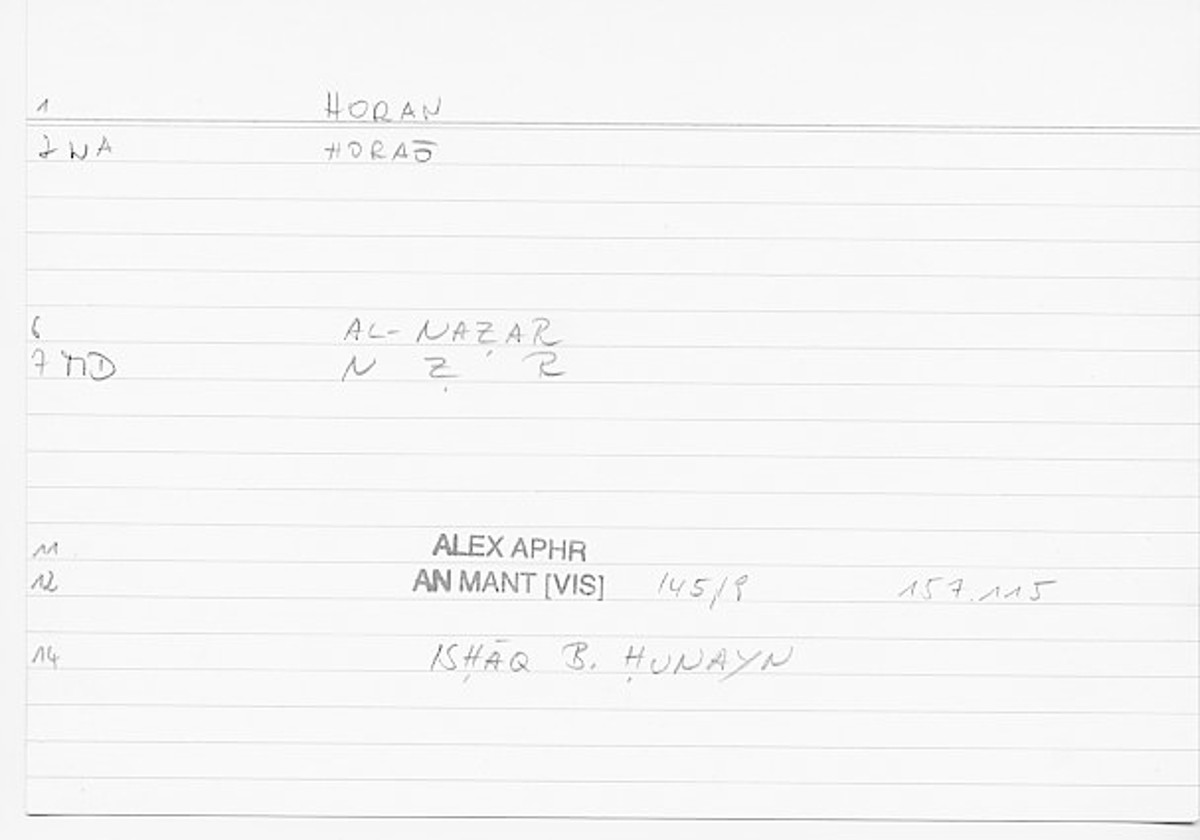 1 HORAN
7 NA HORAŌ
6 AL-NAẒAR
7 MD N Ẓ R
11 ALEX APHR
12 AN MANT [VIS] 145/9 157.115
14 ISḤĀQ B. ḤUNAYN